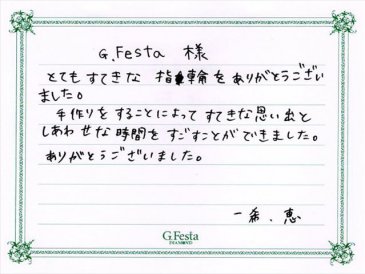 G.Festa 様
とてもすてきな 指輪をありがとうござい
ました。
手作りをすることによって すてきな思い出と
しあわせな時間をすごすことができました。
ありがとうございました。
一希、恵
G.Festa
DIAMOND